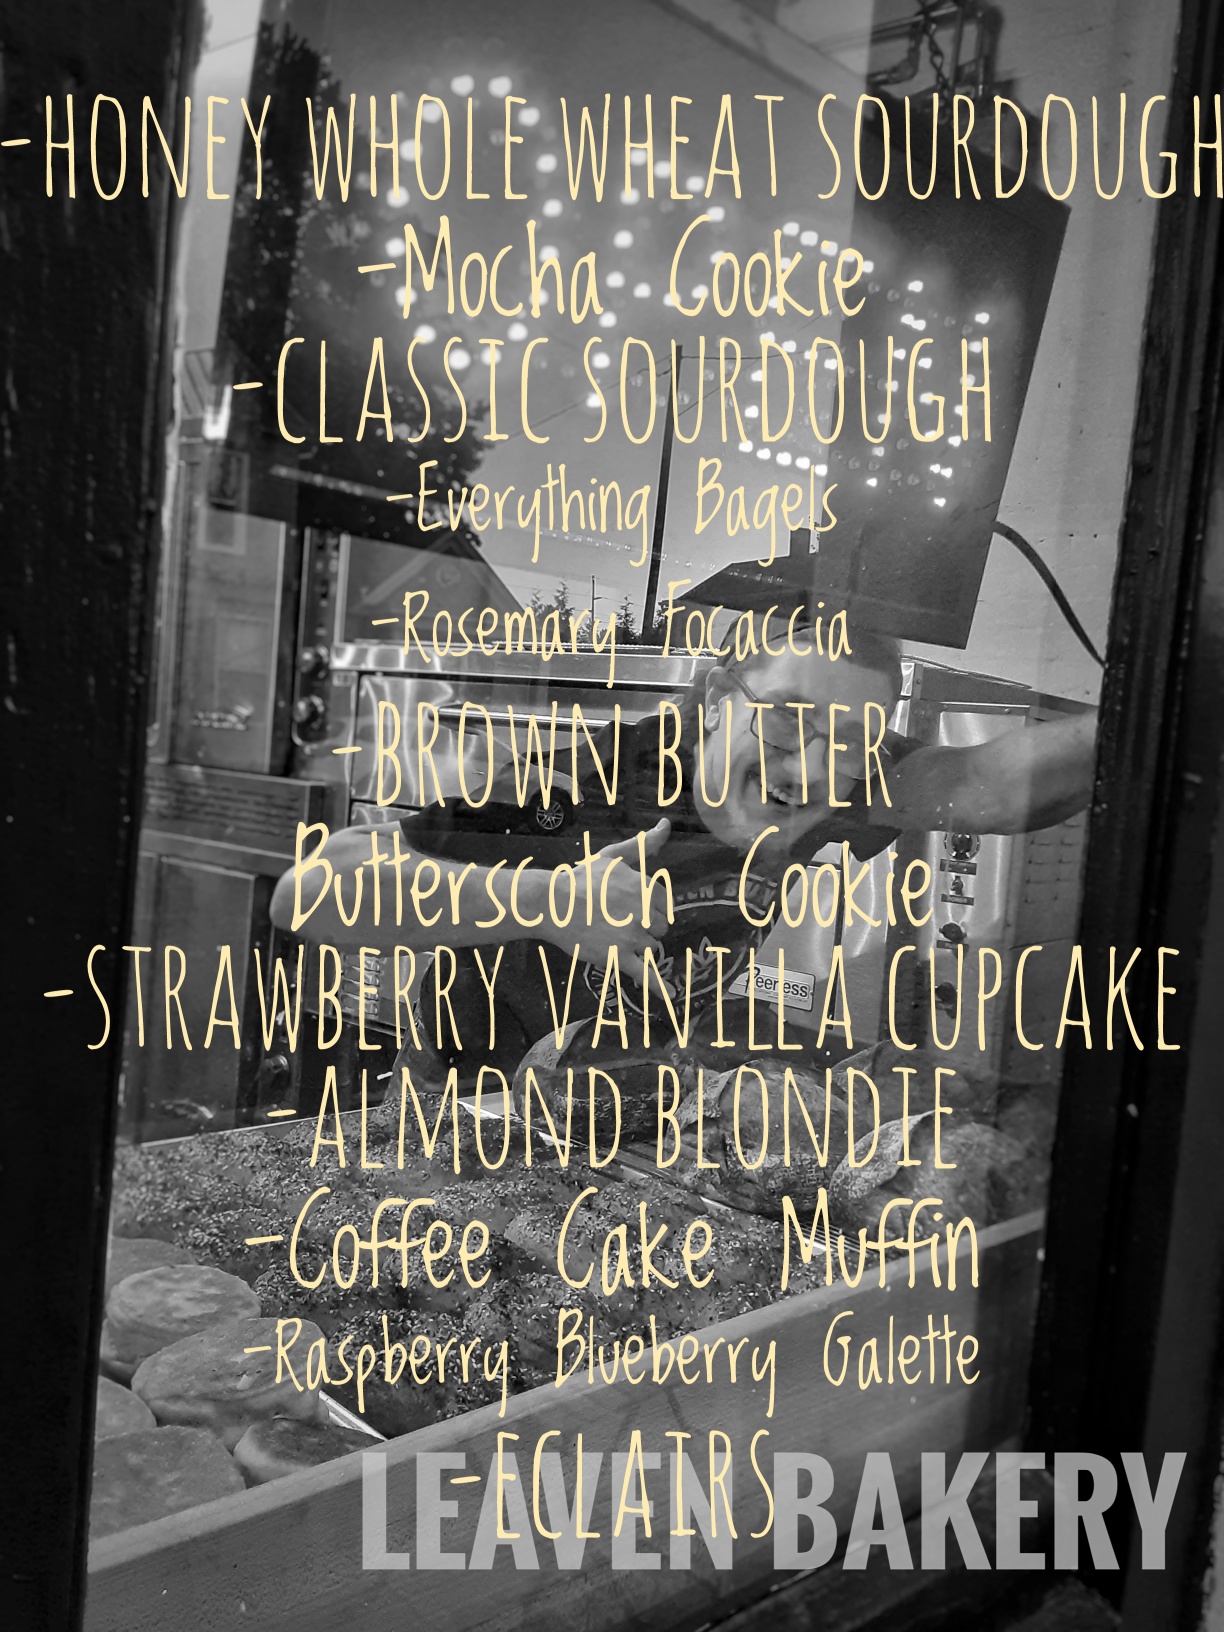 -HONEY WHOLE WHEAT SOURDOUGH
-Mocha Cookie
-CLASSIC SOURDOUGH
-Everything Bagels
-Rosemary Focaccia
-BROWN BUTTER
Butterscotch Cookie
-STRAWBERRY VANILLA CUPCAKE
-ALMOND BLONDIE
-Coffee Cake Muffin
-Raspberry Blueberry Galette
-ECLAIRS
LEAVEN BAKERY
Peerless